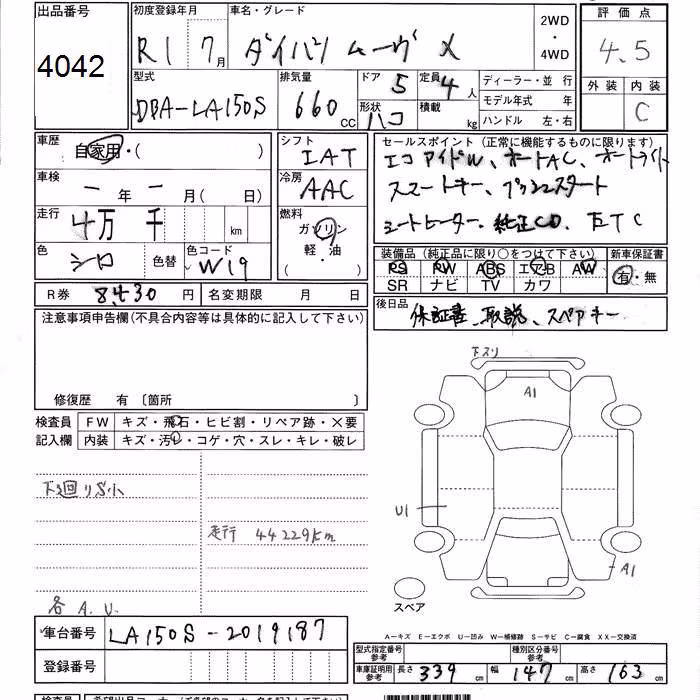 出品番号
4042
初度登録年月
R1 7月
車名・グレード
ダイハツ ムーヴ X
2WD
・
4WD
評価点
4.5
外装 内装
C
型式
DBA-LA150S
排気量
660 CC
ドア 5
形状 ハコ
定員 4人
積載 kg
ディーラー・並行
モデル年式 年
ハンドル 左・右
車歴
自家用・( )
車検
ー年ー月( 日)
走行
4万 千 km
色
シロ
色替
色コード
W19
シフト
IAT
冷房
AAC
燃料
ガソリン
軽・油
・
セールスポイント(正常に機能するものに限ります)
エコアイドル、オートAC、オートライト
スマートキー、プッシュスタート
シートヒーター、純正CD、ETC
装備品(純正品に限り○をつけて下さい)
PS PW ABS エアB AW
SR ナビ TV カワ
新車保証書
有・無
R券 8,430円
名変期限 月 日
後日品
保証書、取説、スペアキー
注意事項申告欄(不具合内容等は具体的に記入して下さい)
修復歴 有〔箇所 〕
検査員
記入欄
FW キズ・飛石・ヒビ割・リペア跡・×要
内装 キズ・汚レ・コゲ・穴・スレ・キレ・破レ
下廻りS小
走行 44229km
各A.U.
下スリ
A1
U1
A1
スペア
A-キズ E-エクボ U-凹み W-補修跡 S-サビ C-腐食 XX-交換済
車台番号
LA150S-2019187
登録番号
型式指定番号
参考
種別区分番号
参考
車庫証明用
参考
長さ 339 cm
幅 147 cm
高さ 163 cm